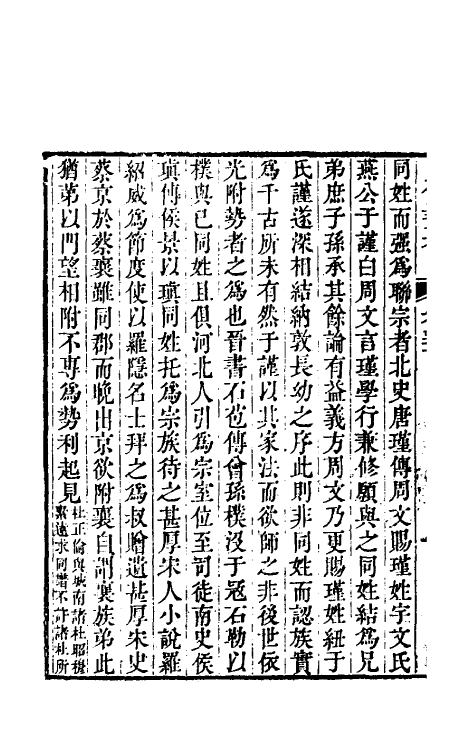 同姓而强爲聯宗者北史唐瑾傳周文賜瑾姓宇文氏
燕公于謹白周文言瑾學行兼修願與之同姓結爲兄
弟庶子孫承其餘論有益義方周文乃更賜瑾姓紐于
氏謹遂深相結納敦長幼之序此則非同姓而認族實
爲千古所未有然于謹以其家法而欲師之非後世依
光附勢者之爲也晉書石苞傳曾孫樸没于寇石勒以
樸與已同姓且俱河北人引爲宗室位至司徒南史侯
瑱傳侯景以瑱同姓托爲宗族待之甚厚宋人小說羅
紹威爲節度使以羅隱名士拜之爲叔贈遺甚厚宋史
蔡京於蔡襄雖同郡而晩出京欲附襄自謂襄族弟此
猶第以門望相附不專爲勢利起見
杜正倫與城南諸杜昭穆
素遠求同譜不許諸杜所